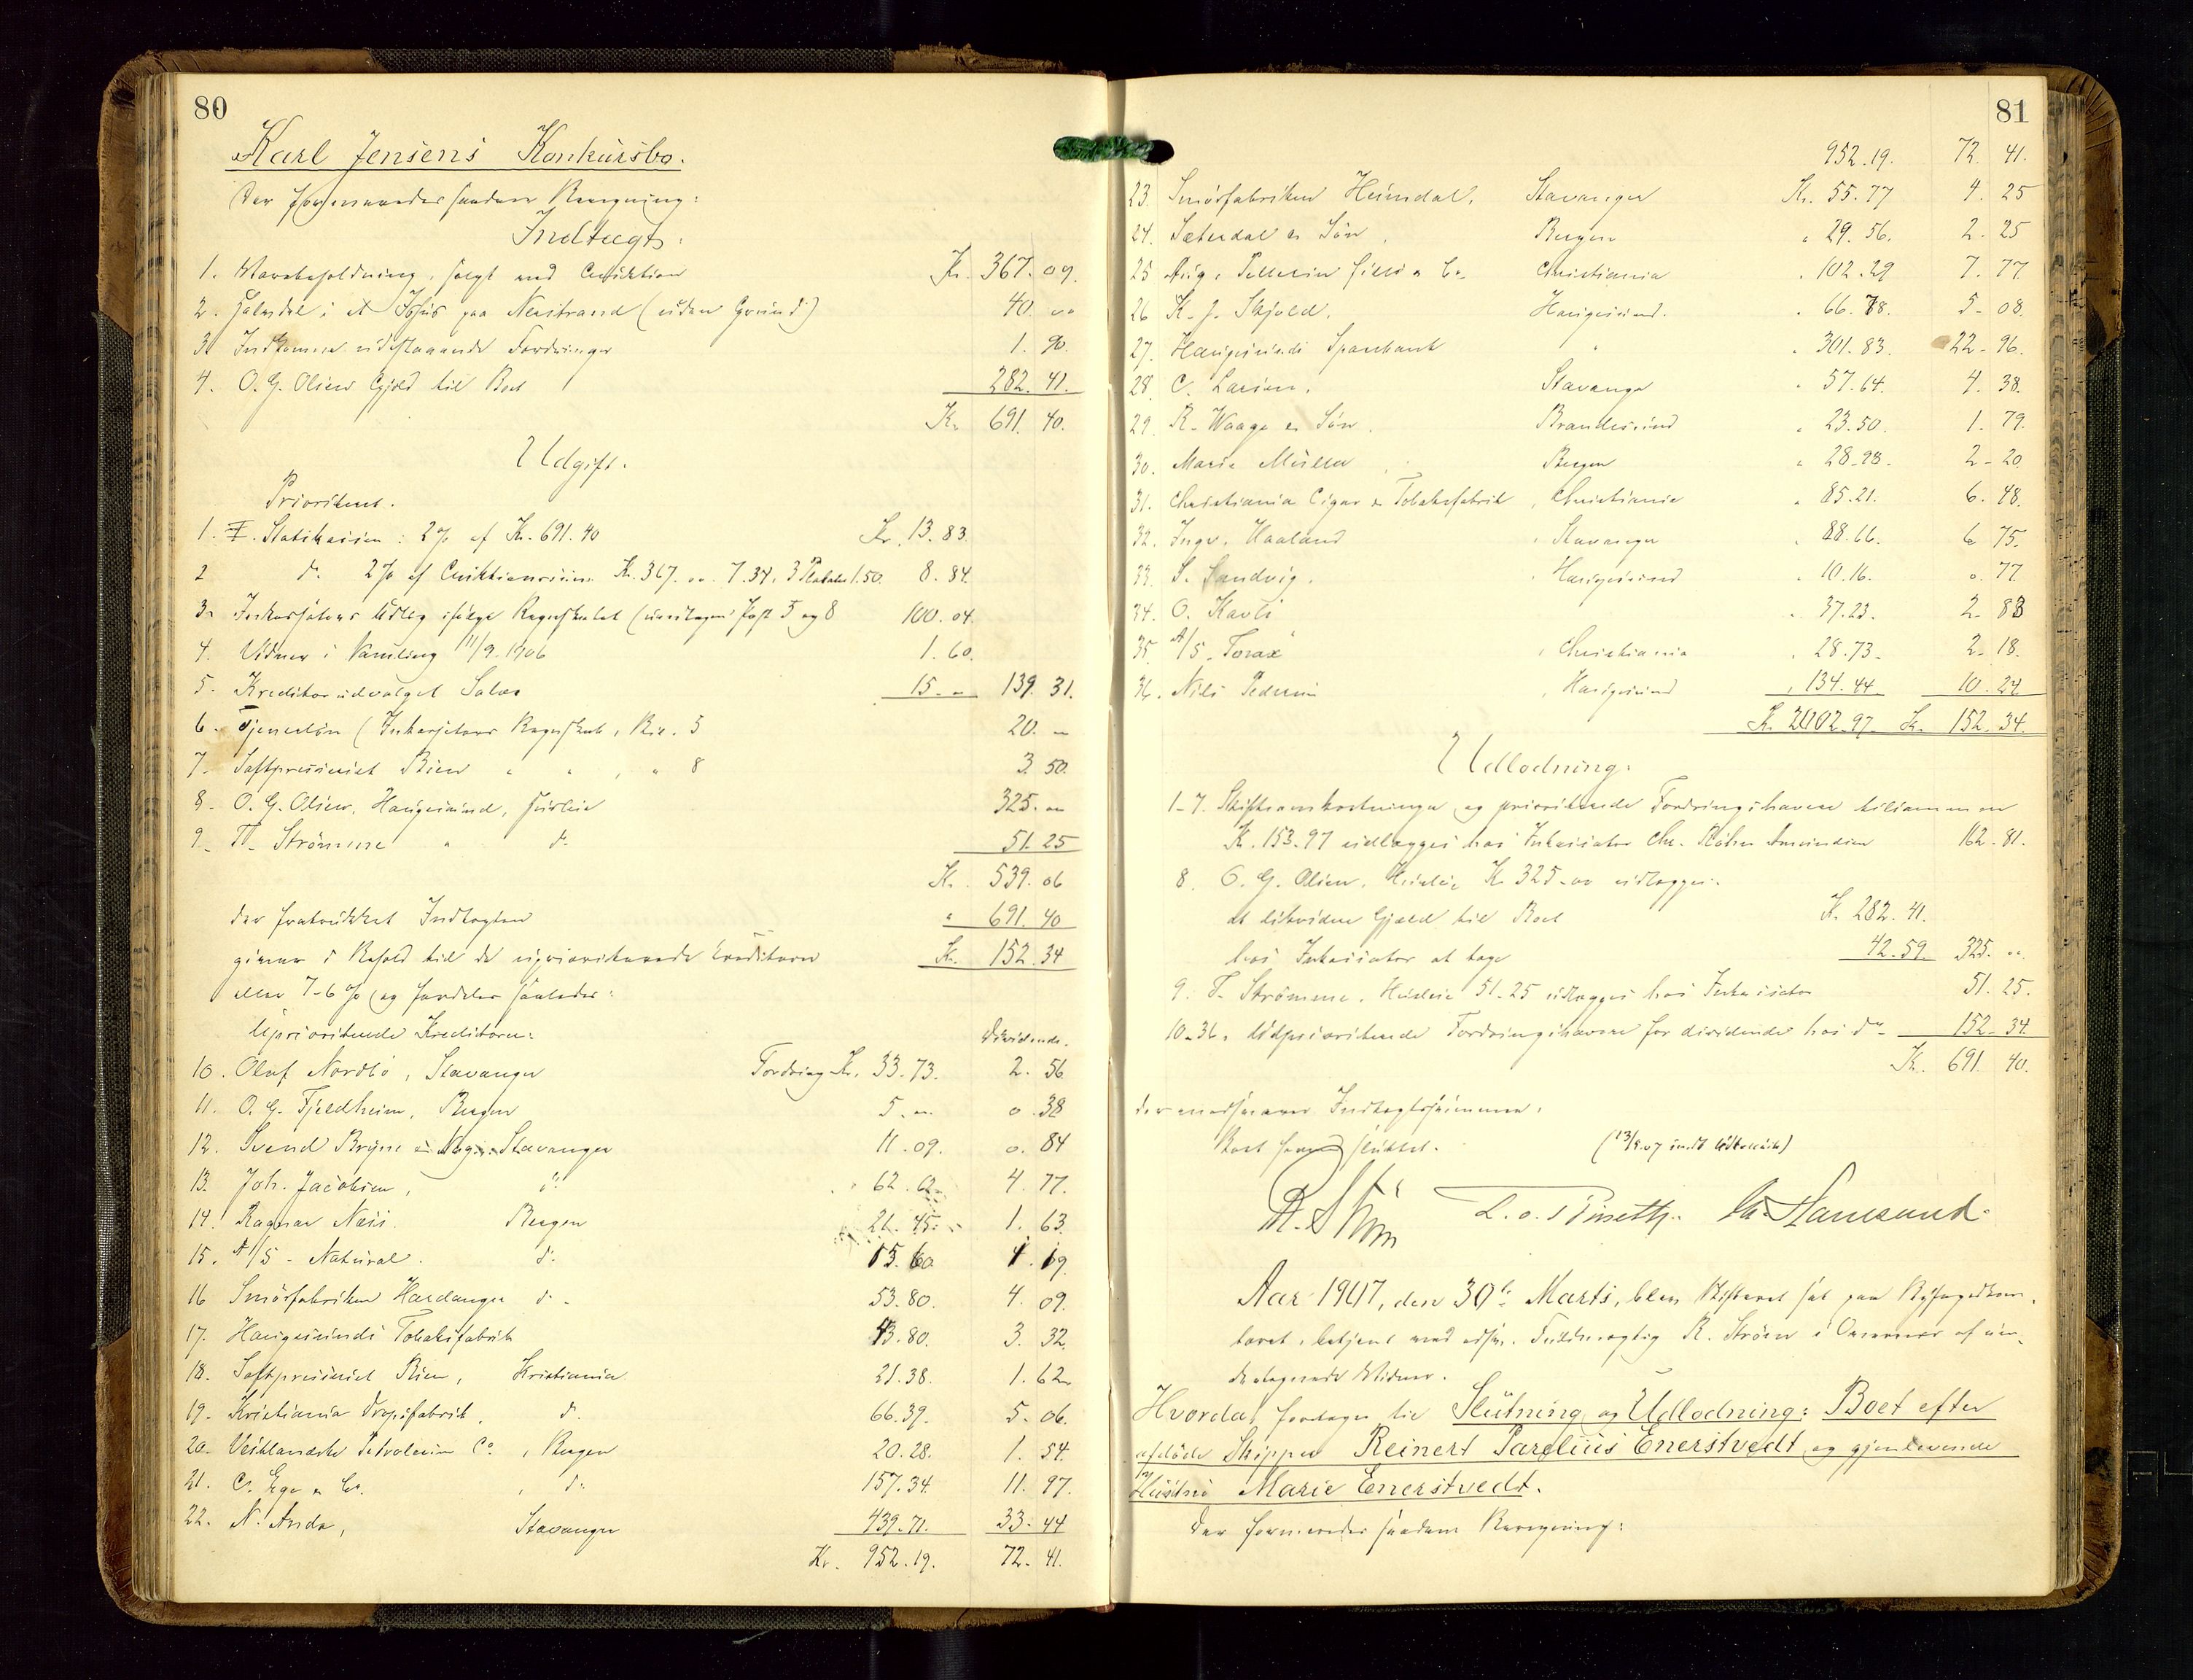 80
Karl Jensens Konkursbo.
Der formeredes saadan Beregning:
Indtægt:
1. Varebeholdning, solgt ved Auktion Kr. 367. 09.
2. Halvdel i et Ishus paa Nerstrand (uden Grund) 40. 00
3. Indkomne udestaaende Fordringer 1. 90.
4. O. G. Olsens Gjæld til Boet 282. 41.
Kr. 691. 40.
Udgift.
Prioritent.
1. Statskassen: 2% af Kr. 691.40 Kr. 13. 83.
2 do. 2% af Auktionssum Kr. 367. 00. 7.34, 3 Plakater 1.50. 8. 84.
3. Inkassators Udlæg ifølge Regnskabet (undtagen Post 5 og 8 100. 04.
4. Vidner i Samling 11/9. 1906 1. 60.
5. Kreditorudvalget Salær 15. " 139. 31.
6. Tjenerløn (Inkassators Regnskab, Bil. 5 20. "
7. Saftpresseriet Bien " " , " 8 3. 50.
8. O. G. Olsen, Haugesund, Husleie 325. "
9. T. Strömme " do. 51. 25
Kr. 539. 06
der fratrukket Indtægten " 691. 40
giver i Behold til de upriviterede Kreditorer Kr. 152. 34
eller 7-6 % og fordeles saaledes:
Uprioriterede Kreditorer: Dividende.
10. Oluf Nordbö, Stavanger Fordring Kr. 33.73. 2. 56
11. O. G. Fjeldheim, Bergen 5. " 0. 38
12. Svend Bryne Stavanger 11. 09. 0. 84
13. Joh. Jacobsen, do. 62. 4. 77.
14. Ragnar Næss. Bergen 21. 45. 1. 63.
15. A/S. Natural. do.
16 Smörfabriken Hardanger do. 53. 80. 4. 09.
17. Haugesunds Tobaksfabrik 43. 80. 3. 32.
18. Saftpresseriet Bien, Kristiania 21. 38. 1. 62.
19. Kristiania Dropsfabrik, do. 66. 39. 5. 06.
20. Vestlandske Petroleum Co, Bergen 20. 28. 1. 54.
21. C. Ege & Co. , do. 157. 34. 11. 97.
22. N. Anda, Stavanger 439. 71. 33. 44
Kr. 952. 19. 72. 41.
81
952. 19. 72. 41.
23. Smörfabriken Heimdal, Stavanger Kr. 55. 77 4. 25
24. Sæterdal & Sön, Bergen " 29. 56. 2. 25
25 Aug. Pellerin fils & Co. Christiania " 102. 29 7. 77
26 K. J. Skjold, Haugesund. " 66. 78. 5. 08.
27. Haugesunds Sparebank " " 301. 83. 22. 96.
28. C. Larsen, Stavanger " 57. 64. 4. 38.
29. R. Waage & Sön. Brandesund " 23. 50. 1. 79.
30. Marie Müller Bergen " 28. 98. 2. 20
31. Christiania Cigar & Tobaksfabrik, Christiania " 85. 21. 6. 48.
32. Ingv. Haaland , Stavanger " 88. 66. 6 75.
33. S. Sandvig. , Haugesund " 10. 16. 0. 77
34. O. Kavli " 37. 23. 2. 83
35. A/S. Torax , Christiania " 28. 73. 2. 18.
36. Nils Pedersen , Haugesund " 134. 44 10. 24
Kr. 2002. 97. Kr. 152. 34.
Udlodning.
1-7. Skifteomkostninger og prioriterede Fordringshavere tilsammen
Kr. 153.97 udlægges hos Inkassator Chr. Amundsen 162. 81.
8. O. G. Olsen, Husleie Kr. 325.00 udlægges.
at likvidere Gjæld til Boet Kr. 282. 41.
hos Inkassator at tage 42. 59. 325. "
9. T. Strömme. Husleie 51.25 udlægges hos Inkassator 51. 25.
10-36. Udprioriterede Fordringshavere for dividende hos do. 152. 34
Kr. 691. 40.
der modsvarer Indtægtssummen.
Boet hermed sluttet.
R. Ström
Aar 1907, den 30te Marts, blev Skifteret sat paa Byfogedkon-
toret, betjent ved edsv. Fuldmægtig R. Ström i Overvær af un-
dertegnede Vidner.
Hvorda foretoges til Slutning og Udlodning: Boet efter
afdöde Skipper Reinert Parelius Enerstvedt og gjenlevende
Hustru Marie Enerstvedt.
Der formeredes saadan Beregning: